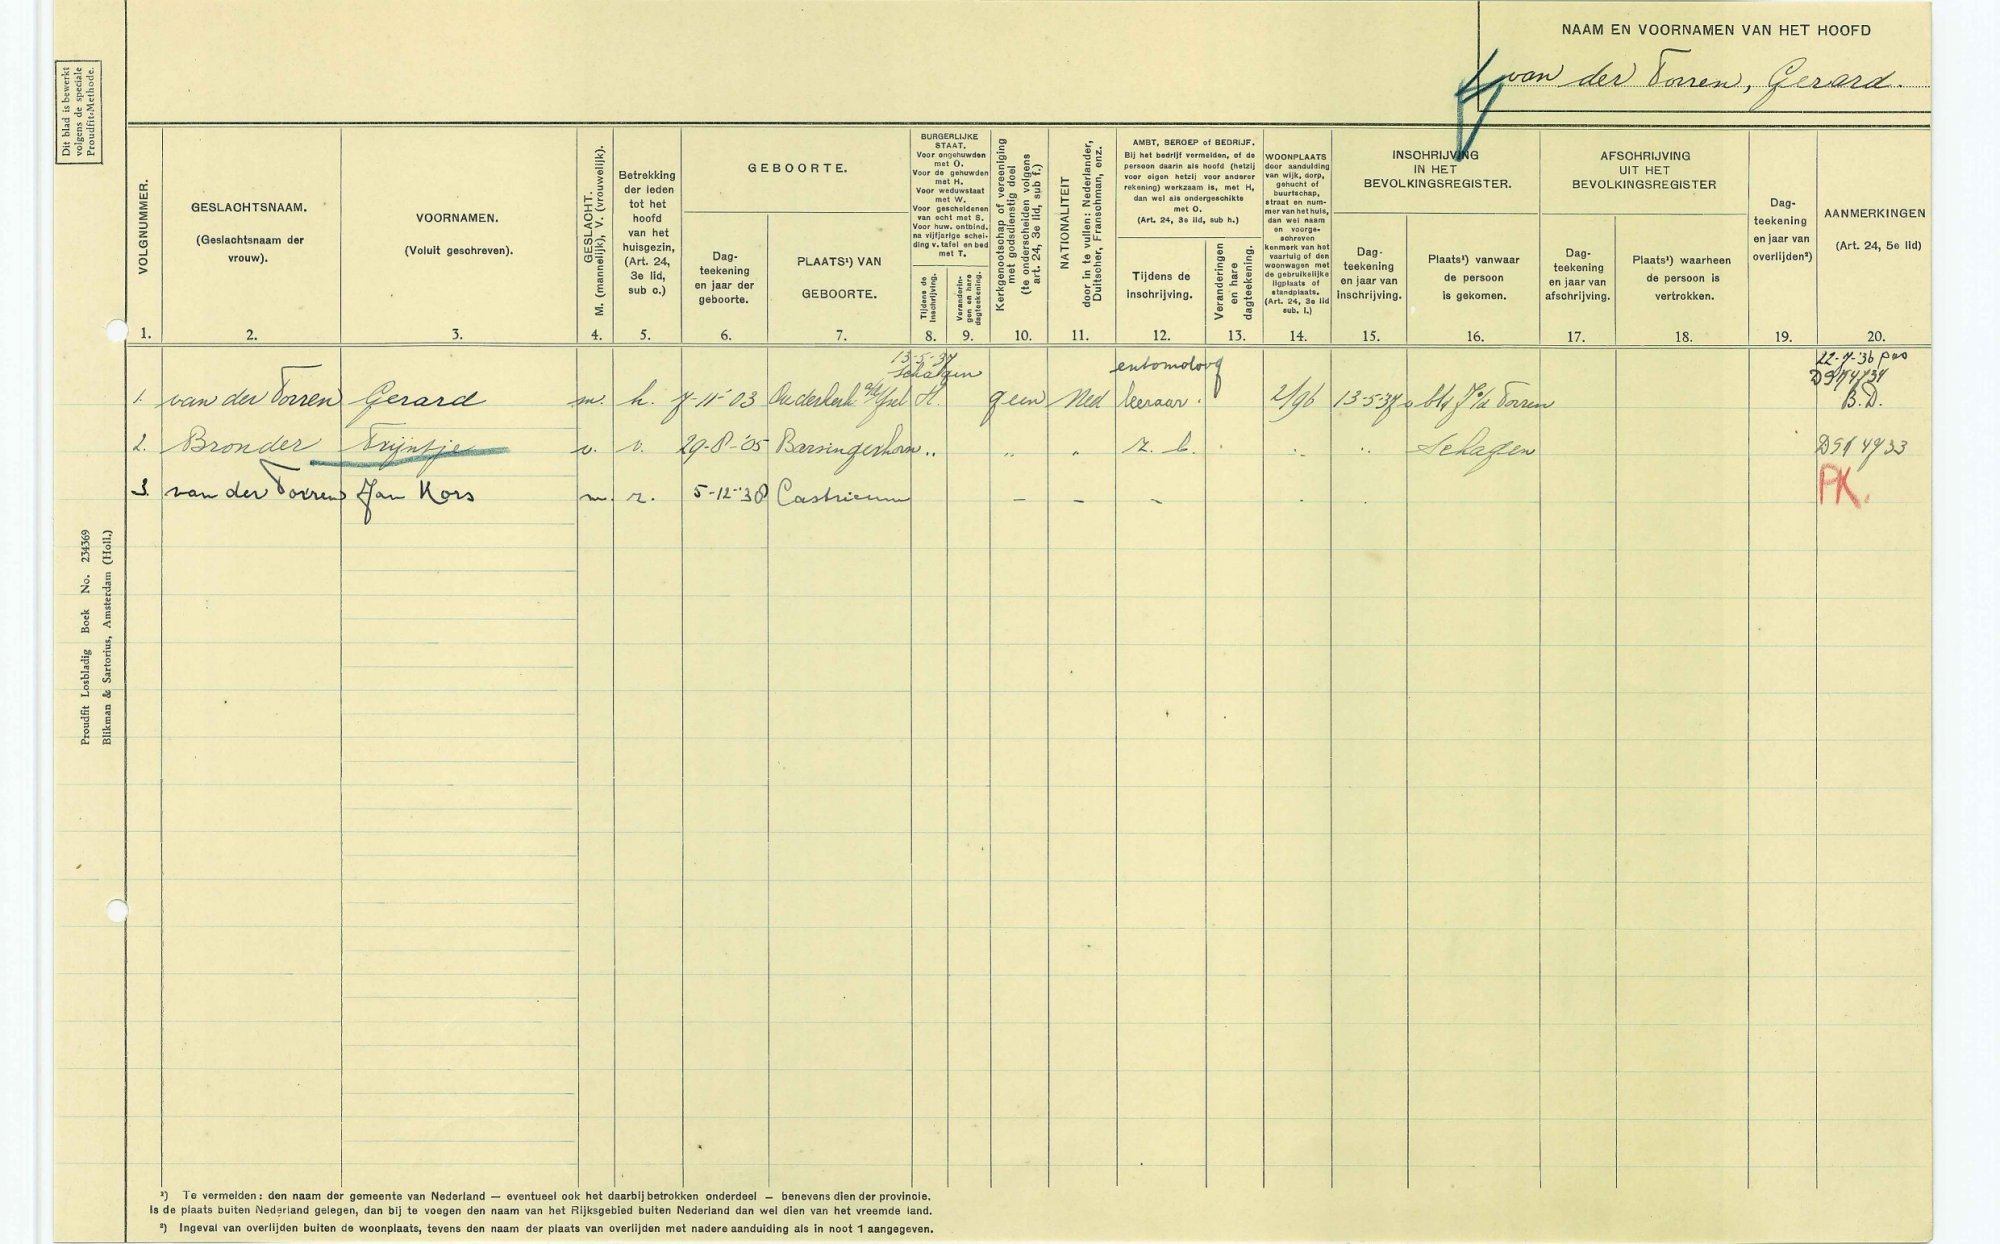 NAAM EN VOORNAMEN VAN HET HOOFD
van der Torren, Gerard.
Dit blad is bewerkt
volgens de speciale
Proudfit-Methode.
VOLGNUMMER.
1.
GESLACHTSNAAM.
(Geslachtsnaam der
vrouw).
2.
VOORNAMEN.
(Voluit geschreven).
3.
GESLACHT.
M. (mannelijk), V. (vrouwelijk).
4.
Betrekking
der leden
tot het
hoofd
van het
huisgezin,
(Art. 24,
3e lid,
sub c.)
5.
GEBOORTE.
Dag-
teekening
en jaar der
geboorte.
6.
PLAATS¹) VAN
GEBOORTE.
7.
BURGERLIJKE
STAAT.
Voor ongehuwden
met O.
Voor de gehuwden
met H.
Voor weduwstaat
met W.
Voor gescheidenen
van echt met S.
Voor huw. ontbind.
na vijfjarige schei-
ding v. tafel en bed
met T.
Tijdens de
inschrijving.
8.
Veranderin-
gen en hare
dagteekening.
9.
Kerkgenootschap of vereeniging
met godsdienstig doel
(te onderscheiden volgens
art. 24, 3e lid, sub f.)
10.
NATIONALITEIT
door in te vullen: Nederlander,
Duitscher, Franschman, enz.
11.
AMBT, BEROEP of BEDRIJF.
Bij het bedrijf vermelden, of de
persoon daarin als hoofd (hetzij
voor eigen hetzij voor anderer
rekening) werkzaam is, met H,
dan wel als ondergeschikte
met O.
(Art. 24, 3e lid, sub h.)
Tijdens de
inschrijving.
12.
Veranderingen
en hare
dagteekening.
13.
WOONPLAATS
door aanduiding
van wijk, dorp,
gehucht of
buurtschap,
straat en num-
mer van het huis,
dan wel naam
en voorge-
schreven
kenmerk van het
vaartuig of den
woonwagen met
de gebruikelijke
ligplaats of
standplaats.
(Art. 24, 3e lid
sub. i.)
14.
INSCHRIJVING
IN HET
BEVOLKINGSREGISTER.
Dag-
teekening
en jaar van
inschrijving.
15.
Plaats¹) vanwaar
de persoon
is gekomen.
16.
AFSCHRIJVING
UIT HET
BEVOLKINGSREGISTER
Dag-
teekening
en jaar van
afschrijving.
17.
Plaats¹) waarheen
de persoon is
vertrokken.
18.
Dag-
teekening
en jaar van
overlijden²)
19.
AANMERKINGEN
(Art. 24, 5e lid)
20.
13-5-37
Schagen
entomoloog
22-7-'36 pas
1. van der Torren Gerard m. h. 7-11-'03 Ouderkerk a/d Ysel H. geen Ned leeraar. 2/96 13-5-37 v/d Torren
B.D.
2. Bronder Trijntje v. v. 29-8-'05 Barsingerhorn " " " z. b. Schagen
3. van der Torren Jan Kors m. z. 5-12-'38 Castricum – – –
PK.
Proudfit Losbladig Boek No. 234369
Blikman & Sartorius, Amsterdam (Holl.)
¹) Te vermelden: den naam der gemeente van Nederland — eventueel ook het daarbij betrokken onderdeel — benevens dien der provincie.
Is de plaats buiten Nederland gelegen, dan bij te voegen den naam van het Rijksgebied buiten Nederland dan wel dien van het vreemde land.
²) Ingeval van overlijden buiten de woonplaats, tevens den naam der plaats van overlijden met nadere aanduiding als in noot 1 aangegeven.